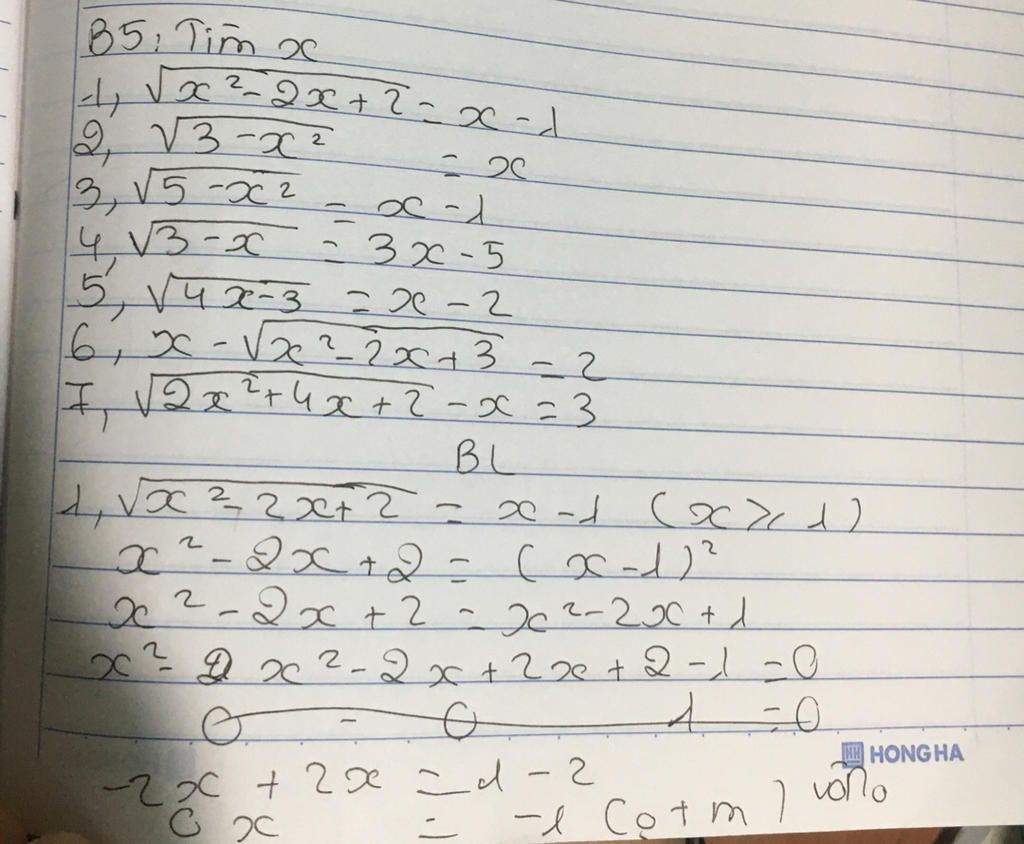 B5: Tìm x
1, √(x² - 2x + 2) = x - 1
2, √(3 - x²) = x
3, √(5 - x²) = x - 1
4, √(3 - x) = 3x - 5
5, √(4x - 3) = x - 2
6, x - √(x² - 2x + 3) = 2
7, √(2x² + 4x + 2) - x = 3
BL
1, √(x² - 2x + 2) = x - 1 (x ≥ 1)
x² - 2x + 2 = (x - 1)²
x² - 2x + 2 = x² - 2x + 1
x² - x² - 2x + 2x + 2 - 1 = 0
0 - 0 1 = 0
HONG HA
-2x + 2x = 1 - 2
0 x = -1 (o t m) vôno